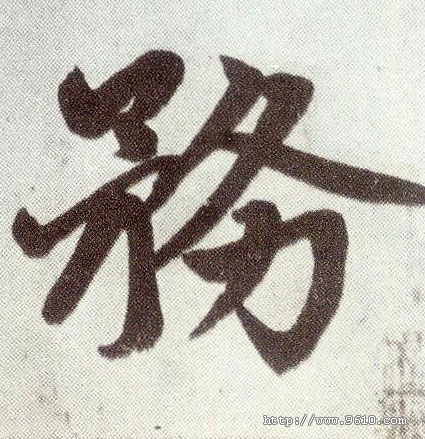 務
http://www.9610.com